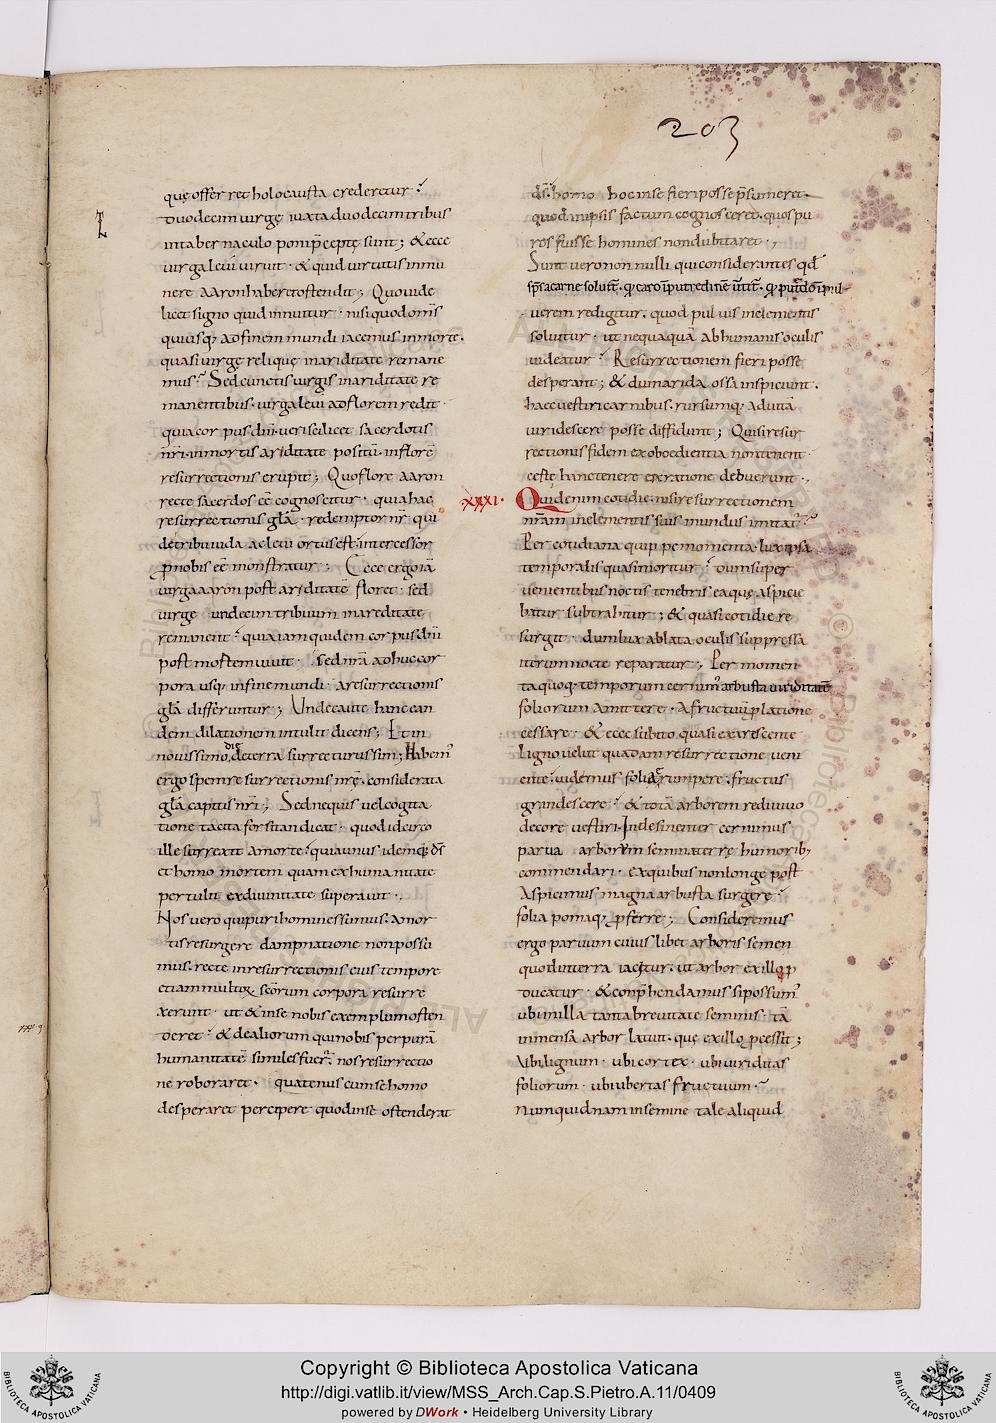 203
quę offerret holocausta crederetur.
Duodecim uirgę iuxta duodecim tribus
in tabernaculo poni p̄ceptę sunt; & ecce
uirga leui uiruit. & quid uirtutis in mu
nere aaron haberet ostendit; Quo uide
licet signo quid innuitur. nisi quod om̄s
qui usq; ad finem mundi iacemus in morte.
quasi uirgę reliquę in ariditate remane
mus. Sed cunctis uirgis in ariditate re
manentibus. uirga leui ad florem rediit.
quia corpus dn̄i. ueri scilicet sacerdotis
nr̄i. in mortis ariditate positū. in florē
resurrectionis erupit; Quo flore aaron
recte sacerdos eē cognoscitur. quia hac
resurrectionis gl̄a. redemptor nr̄ qui
de tribu iuda ac leui ortus est. intercessor
ꝓ nobis eē monstratur; Ecce ergo iā
uirga aaron post ariditatē floret. sed
uirge undecim tribuum in areditate
remanent. quia iam quidem corpus dn̄i
post mortem uiuit. sed nr̄a adhuc cor
pora usq; in fine mundi a resurrectionis
gl̄a differuntur; Unde caute hanc ean
dem dilationem intulit dicens; Et in
nouissimo die de terra surrecturus sum; Habem'
ergo spem resurrectionis nr̄ę. considerata
gl̄a capitis nr̄i; Sed nequis uel cogita
tione tacita forsitan dicat. quod idcirco
ille surrexit a morte. quia unus idemq; ds̄
et homo mortem quam ex humanitate
pertulit ex diuinitate superauit.
Nos uero qui puri homines sumus. a mor
tis resurgere dampnatione non possu
mus. recte in resurrectionis eius tempore
etiam multoꝝ sc̄orum corpora resurre
xerunt. ut & in se nobis exemplum osten
deret. & de aliorum qui nobis per purā
humanitatē similes fuer̄. nos resurrectio
ne roboraret. quatenus cum se homo
desperaret percipere quod in se ostenderat
.XXXI.
ds̄. homo hoc in se fieri posse p̄sumeret.
quod in ipsis factum cognosceret. quos pu
ros fuisse homines non dubitaret.
Sunt uero non nulli qui considerantes qd̄
sp̄s a carne soluit̄. qd̄ caro ī putredinē uertit̄. qd̄ putredo ī pul-
uerem redigitur. quod puluis in elementis
soluitur. ut nequaquā ab humanis oculis
uideatur. Resurrectionem fieri posse
desperant; & dum arida ossa inspiciunt.
haec uestiri carnibus. rursumq; ad uitā
uiridescere posse diffidunt; Qui si resur
rectionis fidem ex oboedientia non tenent.
certe hanc tenere ex ratione debuerunt.
Quid enim cotidie. nisi resurrectionem
nr̄am in elementis suis mundus imitat̄.
Per cotidiana quippe momenta lux ipsa
temporalis quasi moritur. dum super
uenientibus noctis tenebris ea quę aspicie
batur subtrahitur; & quasi cotidie re
surgit. dum lux ablata oculis suppressa
iterum nocte reparatur. Per momen
ta quoq. temporum cernim' arbusta uiriditatē
foliorum amittere. a fructuū ꝓlatione
cessare. & ecce subito quasi ex arescente
ligno uelut quadam resurrectione ueni
ente. uidemus folia erumpere. fructus
grandescere. & totā arborem rediuiuo
decore uestiri. Indesinenter cernimus
parua arborum semina terrę humorib;
commendari. ex quibus non longe post
aspicimus magna arbusta surgere.
folia pomaq; ꝓferre; Consideremus
ergo paruum cuiuslibet arboris semen
quod in terra iacitur. ut arbor ex illo ꝓ
ducatur. & conp̄hendamus si possum'
ubi in illa tanta breuitate seminis. tā
inmensa arbor latuit. quę ex illo ꝓcessit;
Ubi lignum. ubi cortex. ubi uiriditas
foliorum. ubi ubertas fructuum.
Numquidnam in semine tale aliquid
Copyright © Biblioteca Apostolica Vaticana
http://digi.vatlib.it/view/MSS_Arch.Cap.S.Pietro.A.11/0409
powered by DWork • Heidelberg University Library
BIBLIOTECA APOSTOLICA VATICANA
BIBLIOTECA APOSTOLICA VATICANA